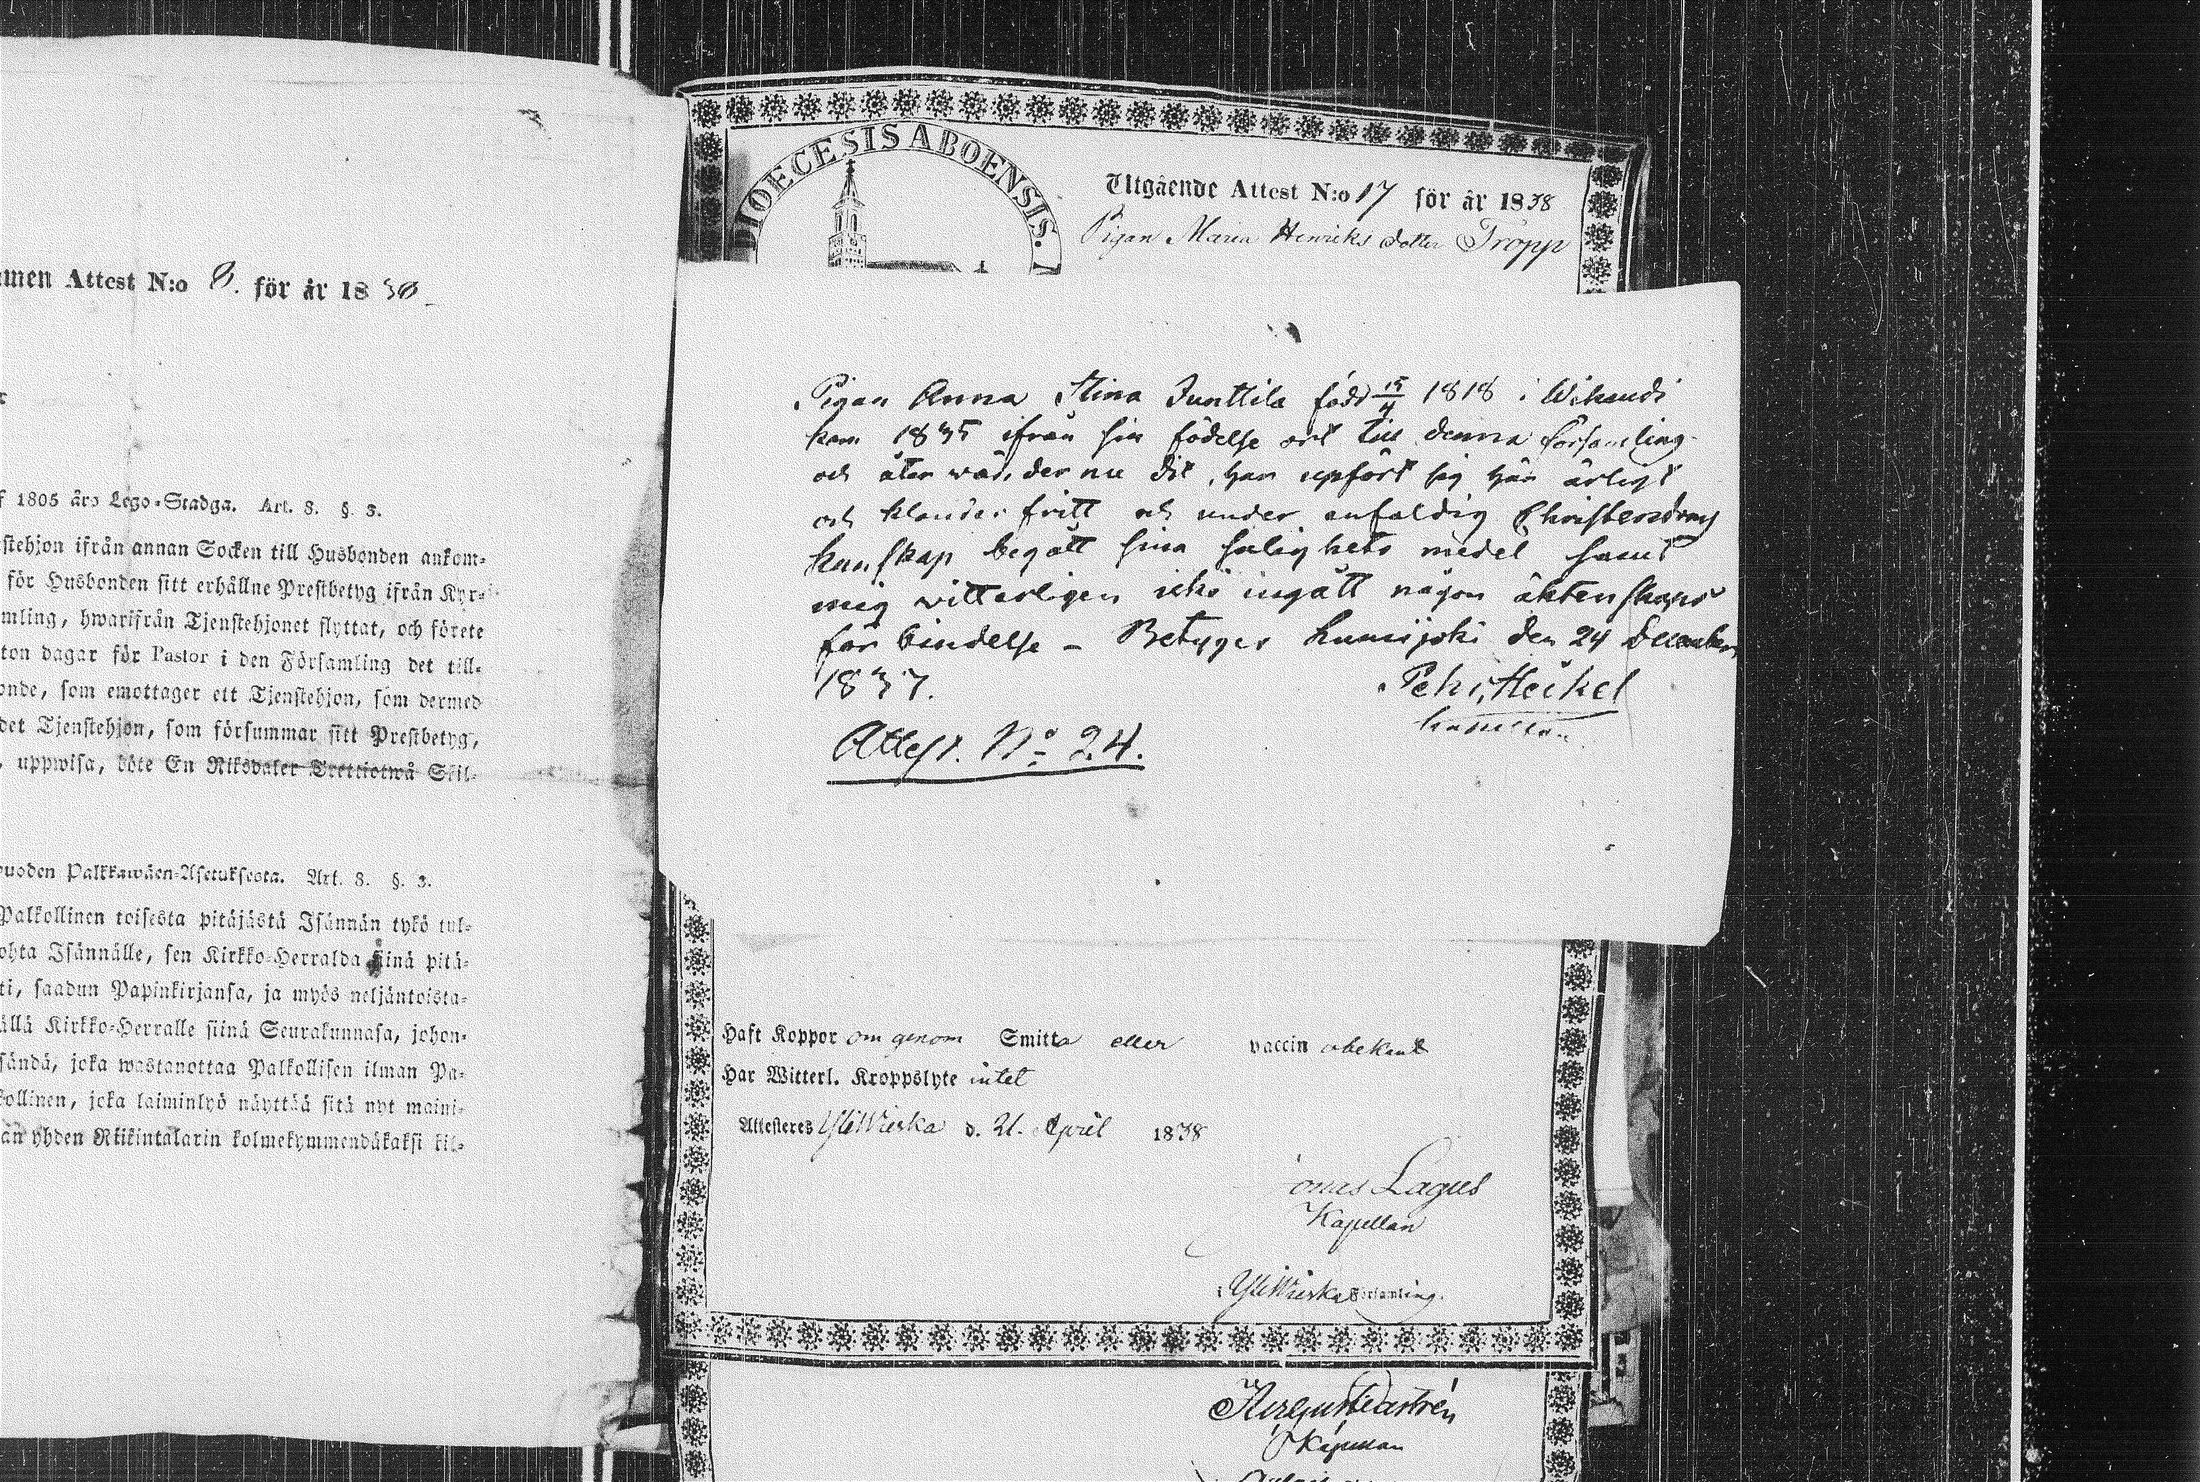 men Attest N:o 8. för år 18
f 1805 års Lego-Stadga. Art. 8. §. 3.
stehjon ifrån annan Socken till Husbonden ankom-
för Husbonden sitt erhållne Prestbetyg ifrån Kyr-
mling, hwarifrån Tjenstehjonet flyttat, och förete
ton dagar för Pastor i den Församling det till-
onde, som emottager ett Tjenstehjon, som dermed
det Tjenstehjon, som försummar sitt Prestbetyg,
, uppwisa, böte En Riksdaler Trettiotwå Skil-
uoden Palkkawäen-Asetuksesta. Art. 8. §. 3.
Palkollinen toisesta pitäjästä Isännän tykö tul-
ohta Isännälle, sen Kirkko-Herralda siinä pitä-
ti, saadun Papinkirjansa, ja myös neljäntoista-
ällä Kirkko-Herralle siinä Seurakunnasa, johon-
sändä, joka wastanottaa Palkollisen ilman Pa-
kollinen, joka laiminlyö näyttää sitä nyt maini-
an yhden Riikintalarin kolmekymmendäkaksi kil-
DIOECESIS ABOENSIS.
Utgående Attest N:o 17 för år 1838
Pigan Maria Henriks dotter Tröpp
Pigan Anna Stina Junttila född 15/4 1818 i Wihandi
kom 1835 ifrån sin födelse ort till denna församling
och åter wänder nu dit, har upfört sig här ärligt
och klander fritt och under enfaldig Christendoms
kunskap begått sina salighets medel samt
mig witterligen icke ingått någon äktenskaps
för bindelse – Betygar Lumijoki den 24 December
1837.
Pehr Heikel
Kapellan
Attest. No 24.
Haft Koppor om genom Smitta eller vaccin obekant
Har Witterl. Kroppslyte intet
Attesteres YliWieska d. 21. April 1838
Jonas Lagus
Kapellan
i YliWieska Församling.
Kapellan